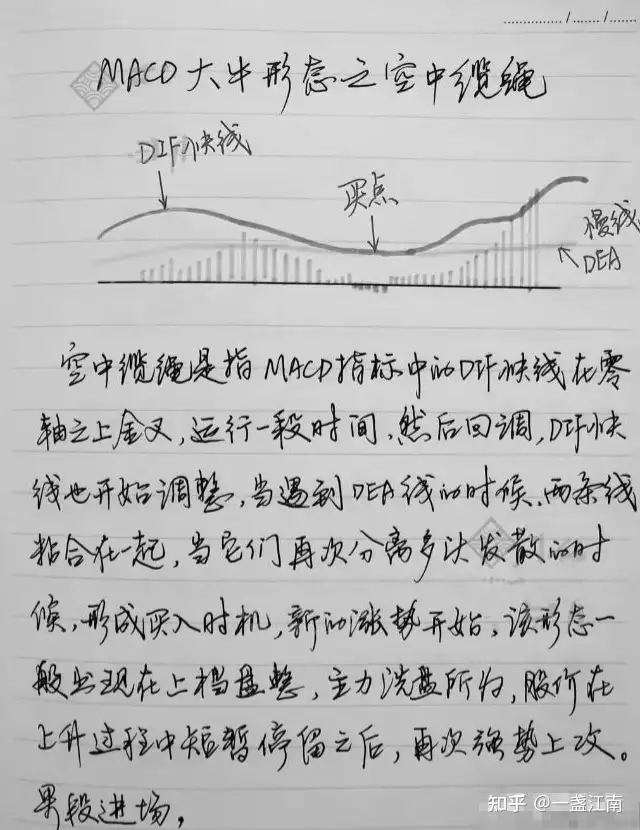 MACD大牛形态之空中缆绳
DIF快线
买点
慢线
DEA
空中缆绳是指MACD指标中的DIF快线在零
轴之上金叉,运行一段时间,然后回调,DIF快
线也开始调整,当遇到DEA线的时候,两条线
粘合在一起,当它们再次分离多头发散的时
候,形成买入时机,新的涨势开始。该形态一
般出现在上档盘整,主力洗盘所为,股价在
上升过程中短暂停留之后,再次强势上攻。
果段进场,
知乎 @一盏江南